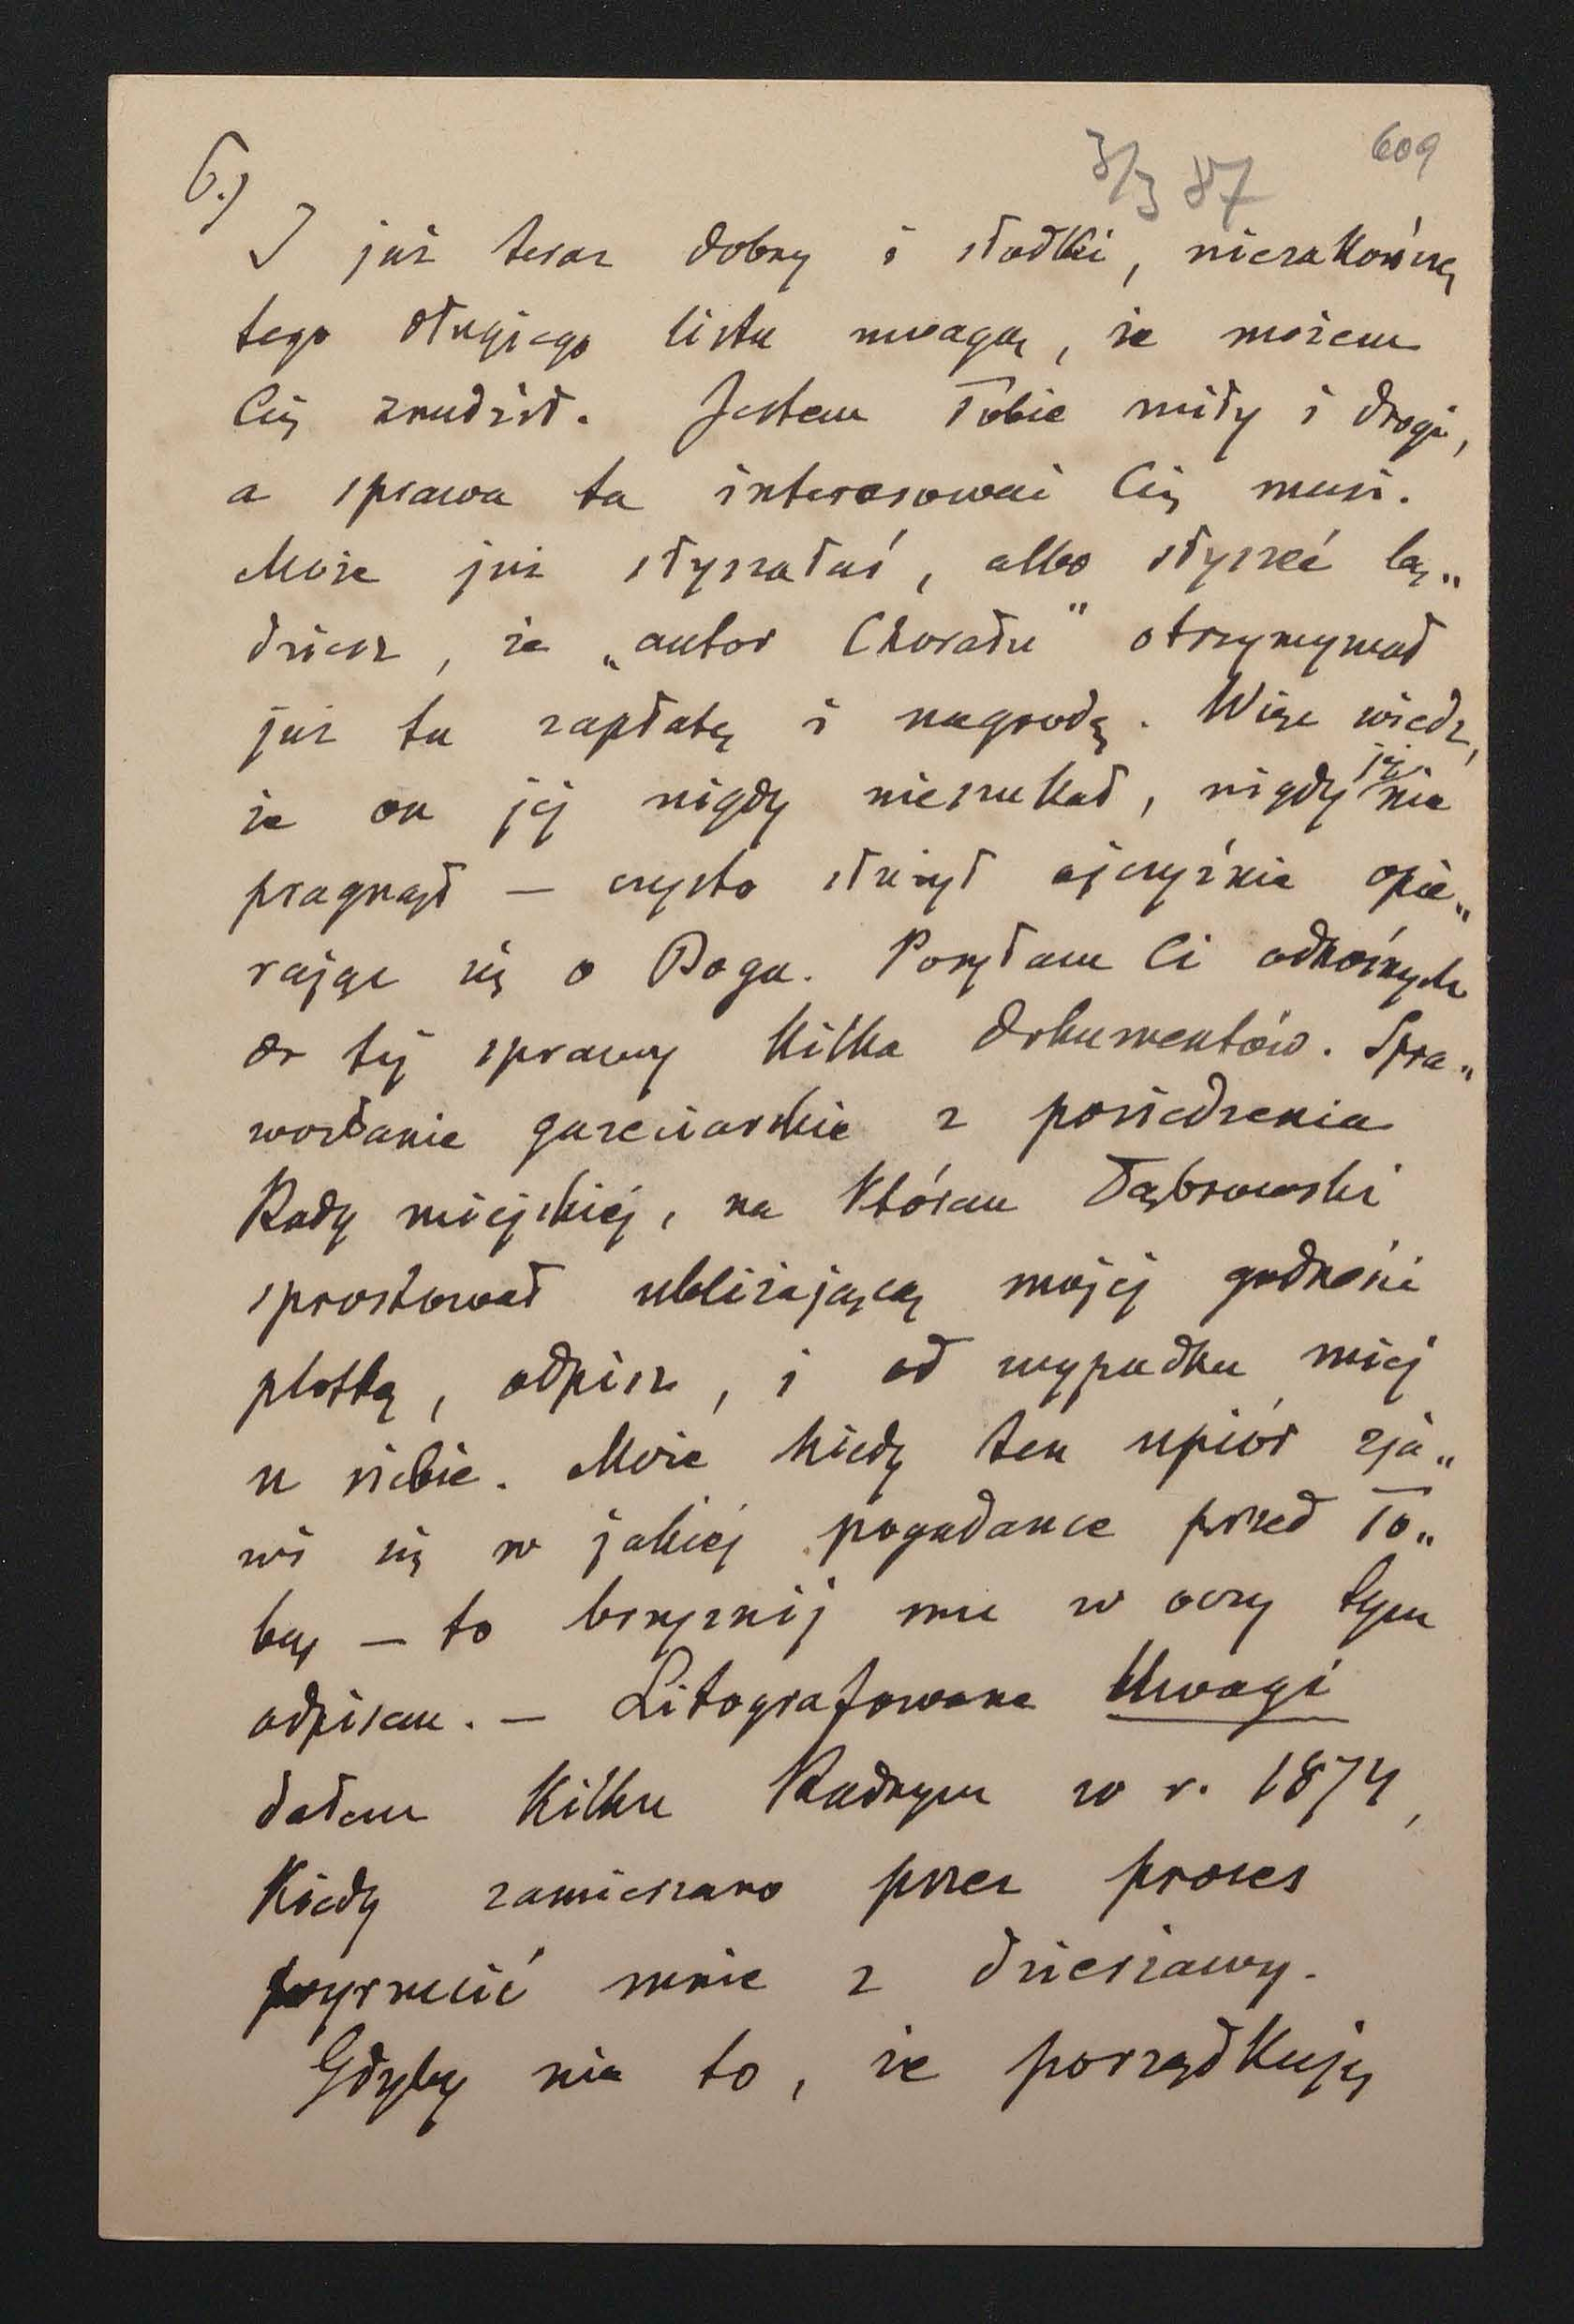 6.)
3/3 87
609
I już teraz dobry i słodki, niezakończę
tego długiego listu uwagą, że możem
Cię znudził. Jestem Tobie miły i drogi,
a sprawa ta interesować Cię musi.
Może już słyszałaś, albo słyszéć bę„
dziesz, że „autor Chorału" otrzymywał
już tu zapłatę i nagrodę. Więc wiedz,
że on jéj nigdy nieszukał, nigdy jéj nie
pragnął — czysto służył ojczyźnie opie„
rając się o Boga. Posyłam Ci odnośnych
do téj sprawy kilka dokumentów. Spra„
wozdanie gazeciarskie z posiedzenia
Rady miejskiej, na którem Dąbrowski
sprostował ubliżającą mojéj godności
plotkę, odpisz, i od wypadku miéj
u siebie. Może kiedy ten upiór zja„
wi się w jakiéj pogadance przed To„
bą — to brzyznij mu w oczy tym
odpisem. — Litografowane Uwagi
dałem kilku Radnym w r. 1874,
kiedy zamierzano przez proces
wyrzucić mnie z dzierżawy.
Gdyby nie to, że porządkuję